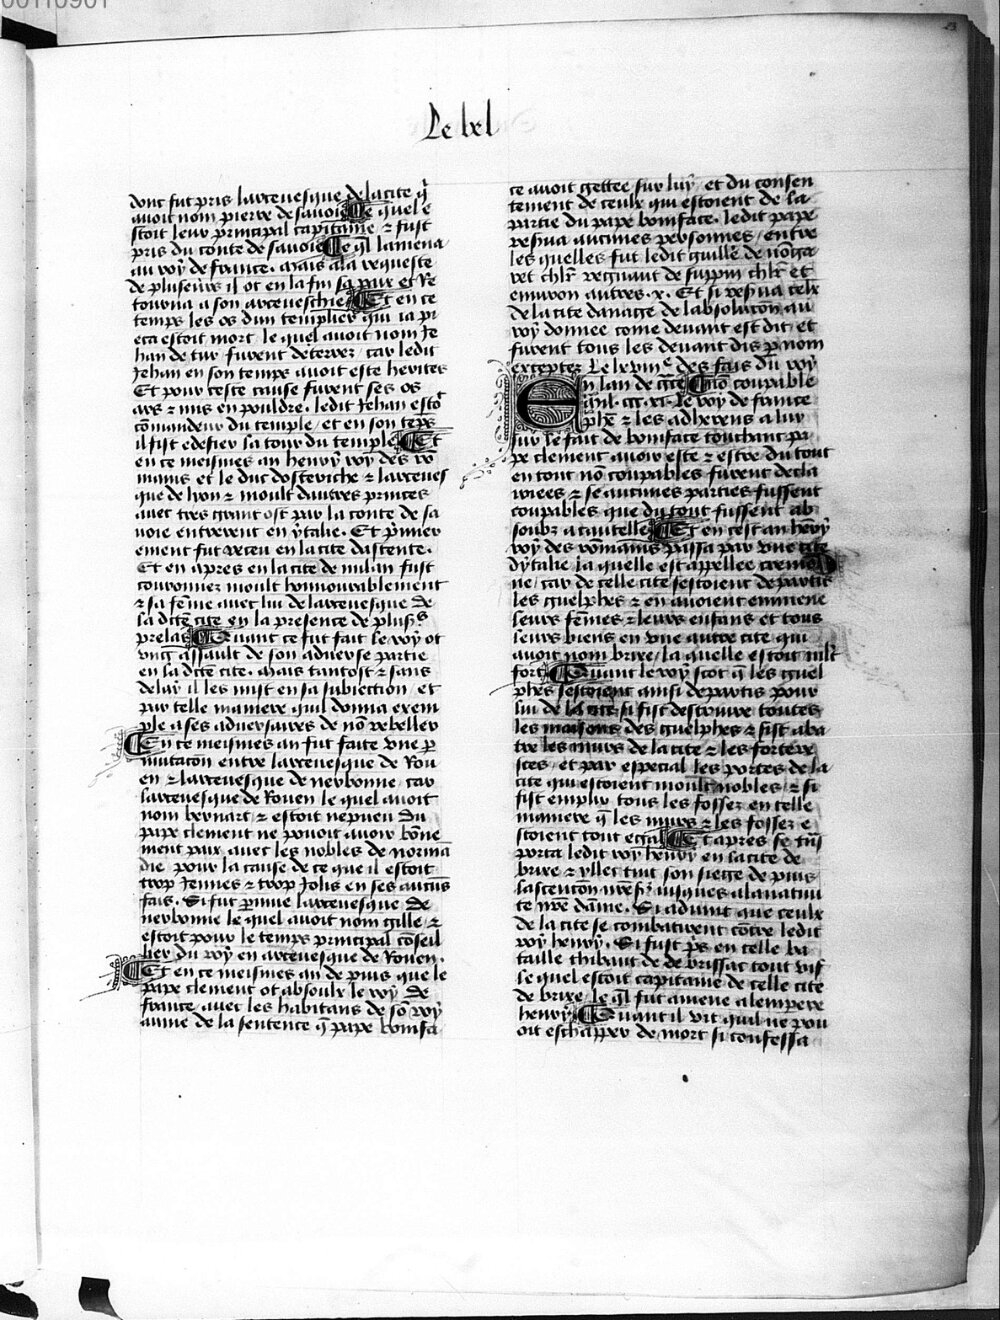 Le lxl
dont fut pris larcevesque de la cite q̄
avoit nom pierre de savoie Le quel e
stoit leur principal capitaine ⁊ fust
pris du conte de savoie Le ql̄ lamena
au roy de france. mais a la requeste
de plusieurs il ot en la fin sa paix et Re
tourna a son arceveschie Et en ce
temps les os dun templier qui ia pi
eca estoit mort le quel avoit nom Je
han de tur furent deterrez car ledit
Jehan en son temps avoit este herites
Et pour ceste cause furent ses os
ars ⁊ mis en pouldre. ledit Jehan estoi
cōmandeur du temple / et en son tēps
il fist edefier la tour du temple Et
en ce meismes an henry roy des ro
mains et le duc dosteriche ⁊ larceves
que de lyon ⁊ moult dautres princes
avec tres grant ost par la conte de sa
voie entrerent en ytalie. Et p̄mier
ement fut receu en la cite dastente.
Et en apres en la cite de milan fust
couronnez moult honnourablement
⁊ sa fēme avec lui de larcevesque de
la dicte cite en la presence de pluss
prelas Quant ce fut fait le roy ot
ung assault de son adverse partie
en la dicte cite. mais tantost ⁊ sans
delay il les mist en sa subiection / et
par telle maniere quil donna exem
ple a ses adversaires de nō rebeller
En ce meismes an fut faite une p̄
mutacōn entre larcevesque de Rou
en ⁊ larcevesque de nerbonne car
larcevesque de Rouen le quel avoit
nom bernart ⁊ estoit nepveu du
pape clement ne povoit avoir bōne
ment paix avec les nobles de normā
die pour la cause de ce que il estoit
trop Jennes ⁊ trop Jolis en ses aucūs
fais. Si fut p̄mue larcevesque de
nerbonne le quel avoit nom gille ⁊
estoit pour le temps principal cōseil
lier du roy en arcevesque de Rouen.
Et en ce meismes an de puis que le
pape clement ot absoulx le roy de
france avec les habitans de so roy
aume de la sentence q̄ pape bonifa
ce avoit gettee sur luy / et du consen
tement de ceulx qui estoient de la
partie du pape boniface. ledit pape
reserva aucunes personnes / entre
les quelles fut ledit guillē de nōga
ret chlr̄ regnaut de suppin chlr̄ et
environ autres .x. Et si reserva celx
de la cite danage de labsolucōn au
roy donnee come devant est dit / et
furent tous les devant dis p̄ nom
exceptez Le lxviiie des fais du roy
En lan de gr̄ce Nō coupable
mil. ccc. xi. Le roy de france
phē ⁊ les adherens a luy
sur le fait de boniface touchant pa
pe clement avoir este ⁊ estre du tout
en tout nō coupables furent decla
riees ⁊ se aucunes parties fussent
coupables que du tout fussent ab
soubz a cautelle Et en cest an hēry
roy des rommains passa par une cite
dytalie la quelle est appellee cremo
ne / car de celle cite sestoient departis
les guelphes ⁊ en avoient emmene
leurs fēmes ⁊ leurs enfans et tous
leurs biens en une autre cite qui
avoit nom brixe / la quelle estoit mlt
fort Quant le roy scot q̄ les guel
phes sestoient ainsi departis pour
lui de la cite si fist descruire toutes
les maisons des guelphes ⁊ fist aba
tre les murs de la cite ⁊ les fortere
sces / et par especial les portes de la
cite qui estoient moult nobles / ⁊ si
fist emplir tous les fossez en telle
maniere q̄ les murs ⁊ les fossez e
stoient tout egal Et apres se trās
porta ledit roy henry en la cite de
brixe ⁊ yllec tint son siege de puis
lascencōn nr̄e sr̄ iusques a la nativi
te nr̄e dāme. Si advint que ceulx
de la cite se combatirent cōtre ledit
roy henry. Si fust p̄s en telle ba
taille thibaut de de brissat tout vif
le quel estoit capitaine de celle cite
de brixe le ql̄ fut amene a lempere
henry Quant il vit quil ne pou
oit eschapper de mort si confessa